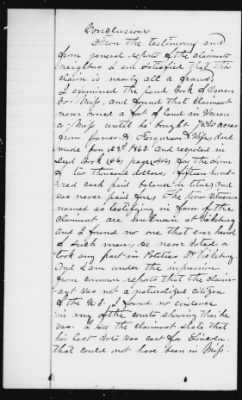 Conclusions
From the testimony and
from general report of the claimants
neighbors I am satisfied that this
claim is nearly all a fraud.
I examined the land Book of Warren
Co Miss, and found that claimant
never owned a foot of land in Warren
co Miss until he bought acres
from James H. Ferguson & Wife, deed
made Jan 23d 1863 and recorded in
Deed Book page for the sum
of two thousand dollars. fifteen hund-
red cash paid balance in time, and
was never paid for. The four witnesses
named as testifying in favor of the
claimant are unknown at Vicksburg
and I found no one that ever heard
of such men. He never voted or
took any part in Politics at Vicksburg.
And I am under the impression
from common reports that the claim-
ant was not a naturalized citizen
of the U.S. I found no evidence
in any of the courts showing that he
was. I see the claimant states that
his last vote was cast for Lincoln
that could not have been in Miss.